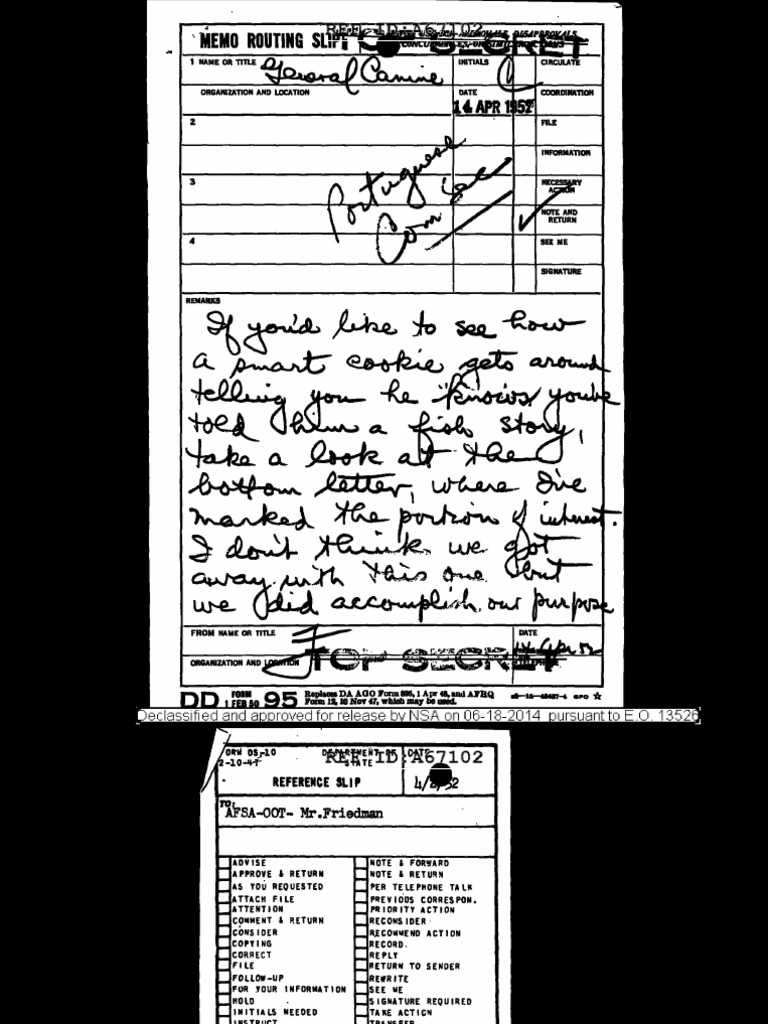 REF ID:A67102
MEMO ROUTING SLIP
TOP SECRET
1 NAME OR TITLE General Canine INITIALS C CIRCULATE
ORGANIZATION AND LOCATION DATE 14 APR 1952 COORDINATION
2 FILE
INFORMATION
Portuguese
Com Sec
3 NECESSARY ACTION
NOTE AND RETURN
4 SEE ME
SIGNATURE
REMARKS
If you'd like to see how
a smart cookie gets around
telling you he "knows" you've
told him a fish story,
take a look at the
bottom letter, where I've
marked the portion of interest.
I don't think we got
away with this one but
we did accomplish our purpose
FROM NAME OR TITLE F DATE
ORGANIZATION AND LOCATION TOP SECRET 14 Apr 52
DD FORM 1 FEB 50 95 Replaces DA AGO Form 895, 1 Apr 48, and AFHQ
Form 12, 10 Nov 47, which may be used.
Declassified and approved for release by NSA on 06-18-2014 pursuant to E.O. 13526
REF ID:A67102
FORM DS-10 DEPARTMENT OF STATE DATE
2-10-47
REFERENCE SLIP
TO:
AFSA-OOT- Mr.Friedman
ADVISE NOTE & FORWARD
APPROVE & RETURN NOTE & RETURN
AS YOU REQUESTED PER TELEPHONE TALK
ATTACH FILE PREVIOUS CORRESPON.
ATTENTION PRIORITY ACTION
COMMENT & RETURN RECONSIDER
CONSIDER RECOMMEND ACTION
COPYING RECORD.
CORRECT REPLY
FILE RETURN TO SENDER
FOLLOW-UP REWRITE
FOR YOUR INFORMATION SEE ME
HOLD SIGNATURE REQUIRED
INITIALS NEEDED TAKE ACTION
INSTRUCT TRANSFER